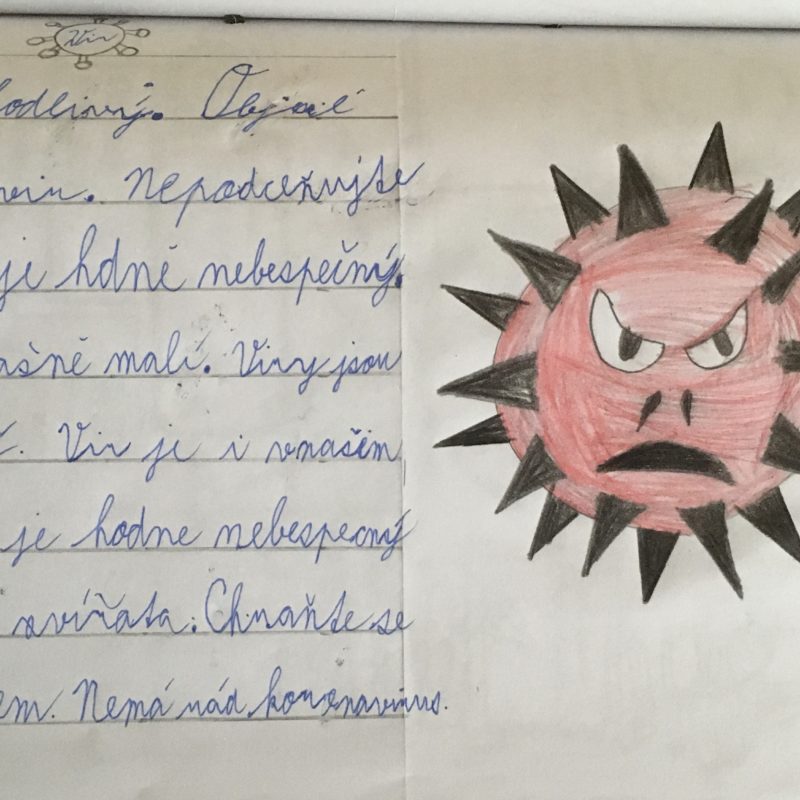 Vir
odlivý. Objevil
Nepodceňujte
je hdně nebespečný.
ašně malí. Viry jsou
Vir je i vnašem
je hodne nebespecný
zvířata. Chraňte se
em. Nemá rád koronavirus.